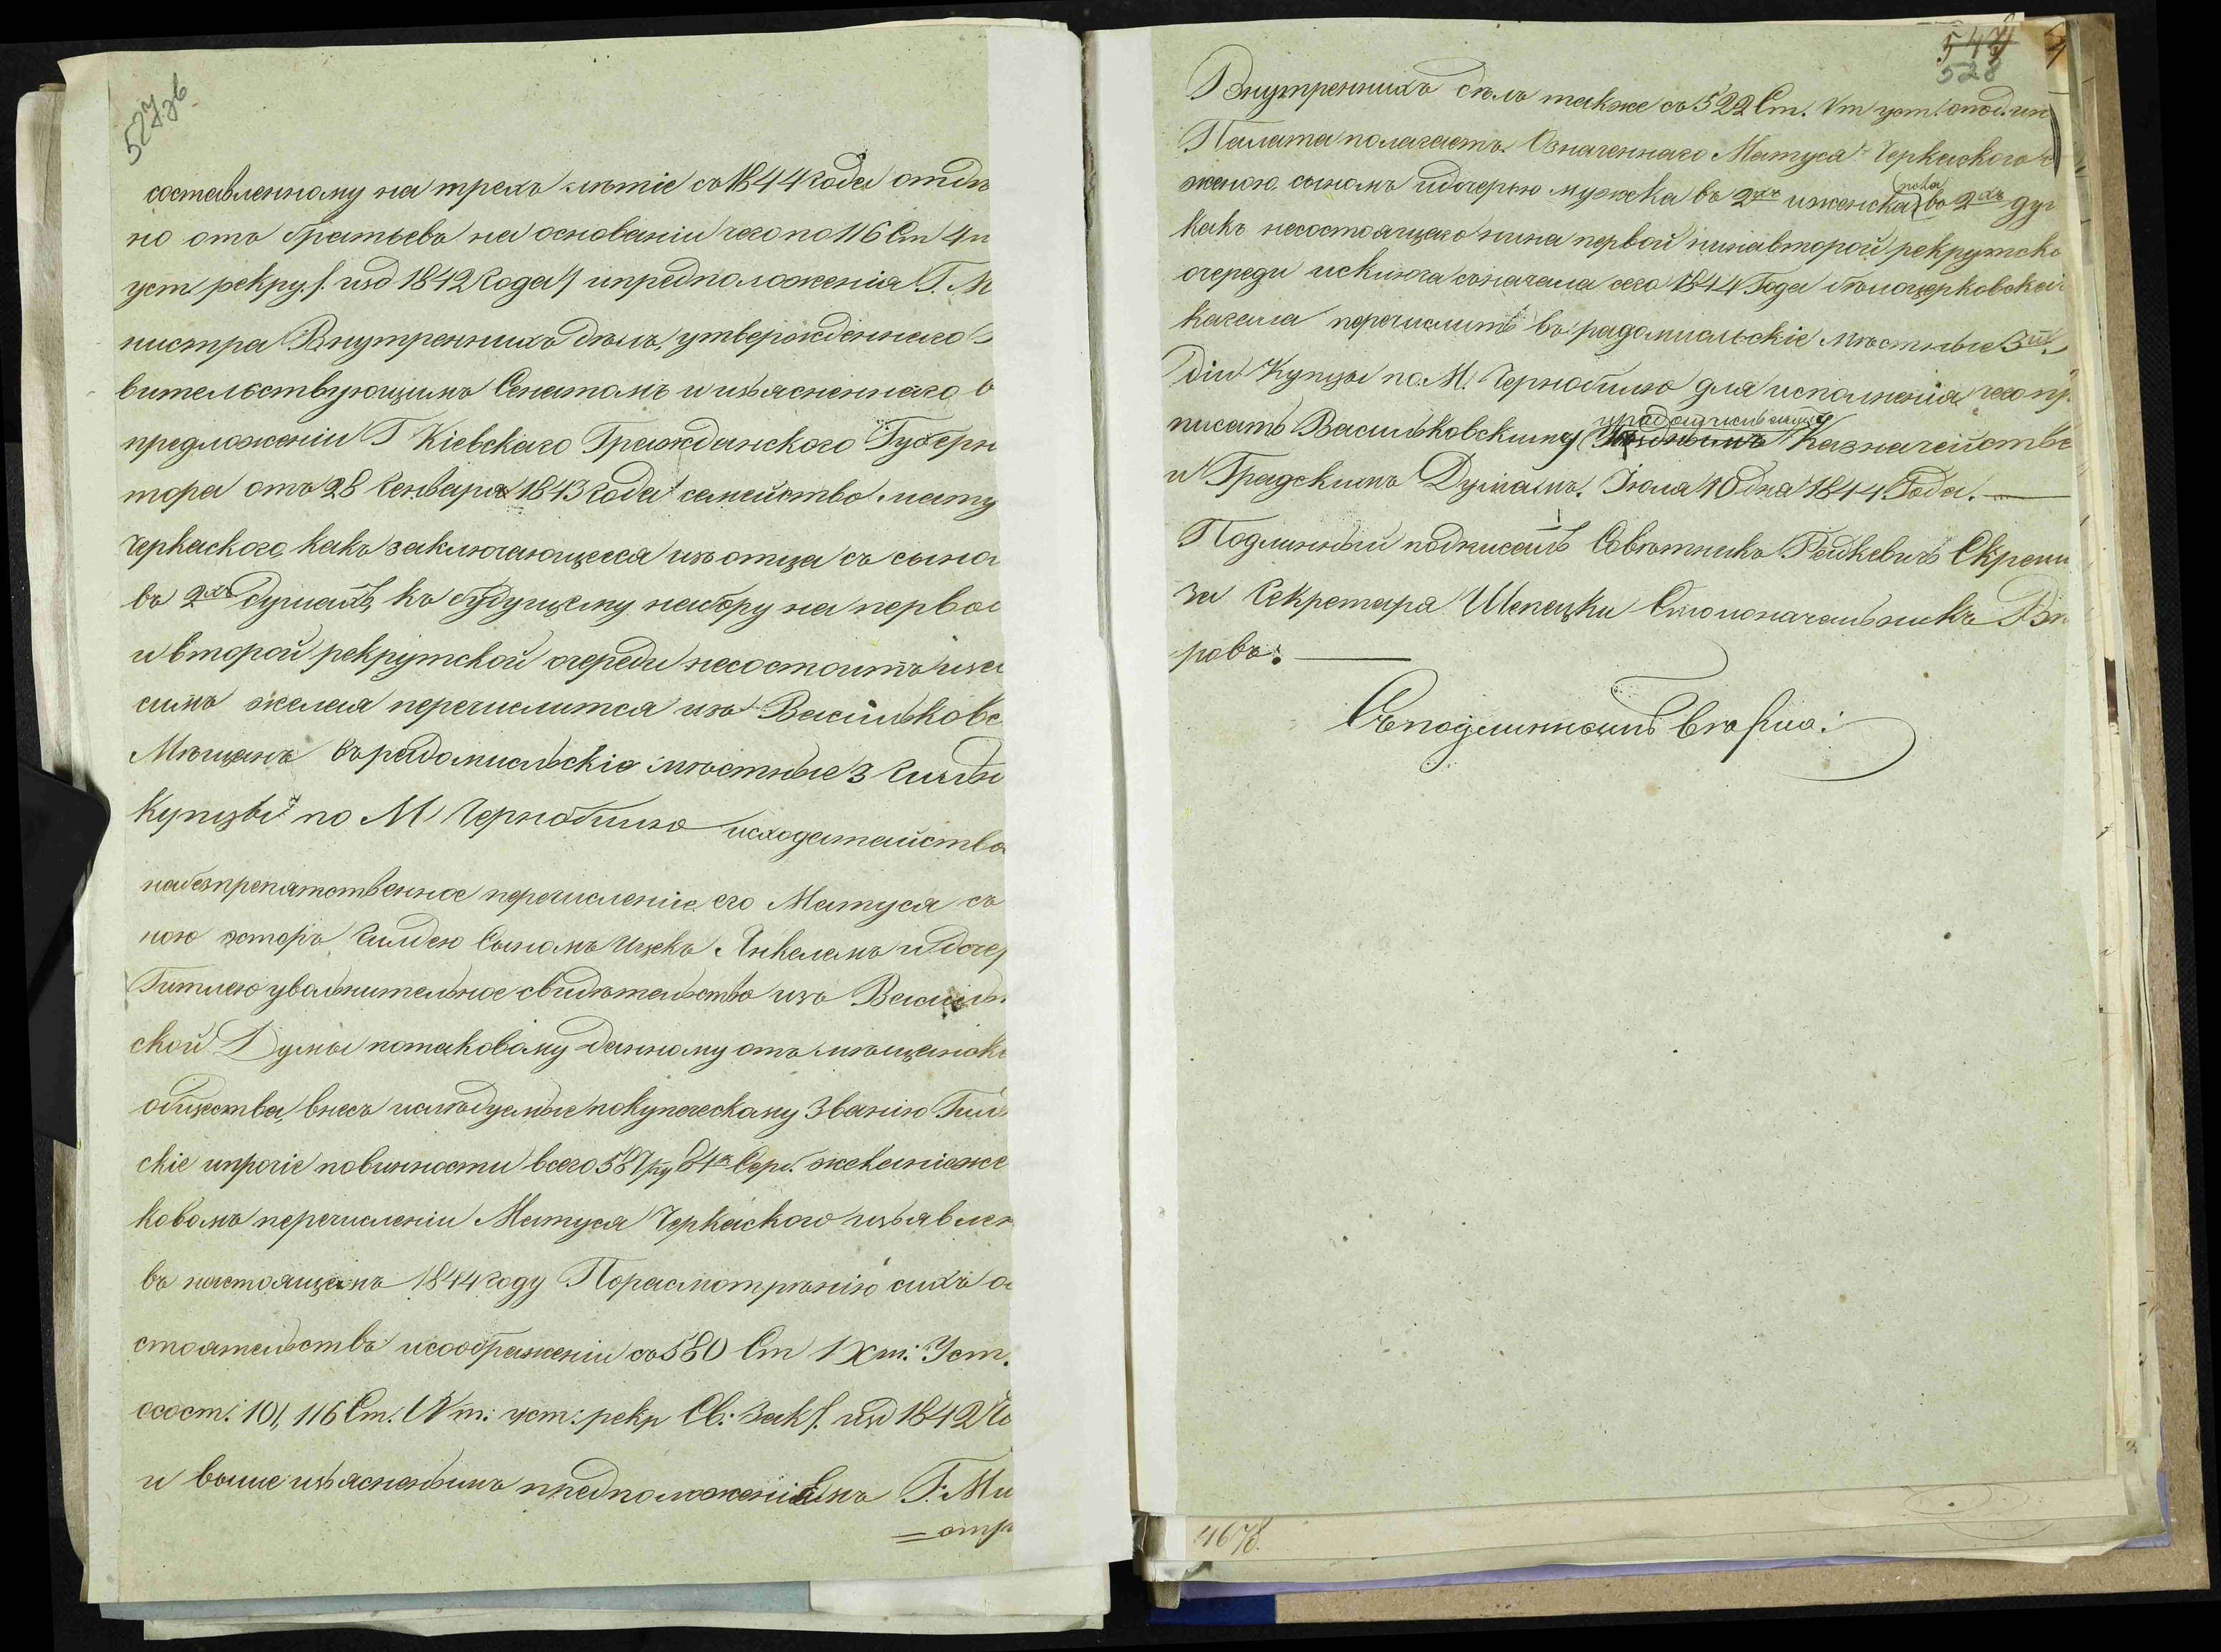 527 об
составленному на трехъ лѣтіе съ 1844 года отдѣ
но отъ братьевъ на основаніи чего по 116 Ст 4 п
уст рекру. изд 1842 года и предположенія Г. М
нистра Внутреннихъ дѣлъ, утвержденнаго
вительствующимъ Сенатомъ и изъясненнаго в
предложеніи Г Кіевскаго Гражданского Губерн
тора отъ 28 Генваря 1843 года семейство мату
Черкаского какъ заключающееся изъ отца съ сыно
въ 2хъ душахъ, къ будущему набору на первой
и второй рекрутской очереди несостоитъ и за
симъ желая перечислится изъ Васильковс
Мѣщанъ въ радомисльскіе мѣстные 3 Гильди
Купцы по М Чернобылю исходатайство
на безпрепятственное перечисленіе его Матуся съ
ною эстеръ Гилдею Сыномъ Ицекъ Янкелемъ и дочер
Гитлею увольнительное свидѣтельство изъ Васильк
ской Думы потаковому данному отъ мѣщанск
общества, внесъ и слѣдуемые по купеческому званію Гил
скіе и прочіе повинности всего 587 ру 64 к Сер. желаніе же
ковомъ перечисленіи Матуся Черкаского изъявлен
въ настоящемъ 1844 году Поразсмотрѣнію сихъ о
стоятельствъ и соображеніи съ 580 Ст IX т: Уст.
о сост: 101, 116 Ст. IV т: уст: рекр Св: Зак. изд 1842 Го
и выше изъясненнымъ предположеніемъ Г. Ми
= стр
547
528
Внутреннихъ дѣлъ также съ 522 Ст. V т уст. о под.
Палата полагаетъ. Означеннаго Матуся Черкаского с
женою сыномъ и дочерью мужска въ 2хъ и женска
пола
въ 2хъ душ
какъ несостоящаго ни на первой ни на второй рекрутско
очереди исключа съ начала сего 1844 Года бѣлоцерковскаго
кагала перечислить въ радомисльскіе мѣстные 3й
діи Купцы по М. Чернобылю для исполненія чего пр
писать Васильковскимъ
Казначействѣ
и Градскимъ Думамъ. Іюля 10 дня 1844 Года.
Подлинный подписалъ Совѣтникъ Рашкевичъ Скрепи
за Секретаря Шепецки Столоначальникъ
ровъ.
Съ подлиннымъ вѣрно:
4678.